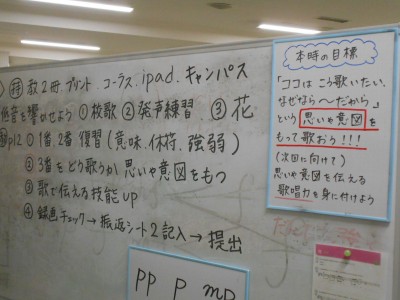 持 教2冊.プリント.コーラス.ipad.キャンパス
低音を響かせよう ①校歌 ②発声練習 ③花
p12 ①1番、2番 復習(意味、休符、強弱)
②3番をどう歌うか 思いや意図をもつ
③歌で伝える技能UP
④録画チェック→振返シート2記入→提出
pp p mp
本時の目標
「ココは こう歌いたい。
なぜなら〜だから」
という 思いや意図を
もって歌おう!!!
(次回に向けて)
思いや意図を伝える
歌唱力を身に付けよう